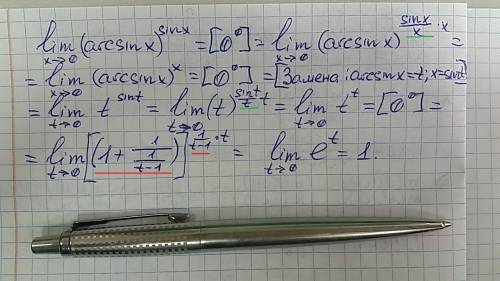 lim_{x→0} (arcsinx)^{sinx} = [0^0] = lim_{x→0} (arcsinx)^{\frac{sinx}{x}·x} =
= lim_{x→0} (arcsinx)^x = [0^0] = [Замена: arcsinx=t; x=sint] =
= lim_{t→0} t^{sint} = lim_{t→0} (t)^{\frac{sint}{t}·t} = lim_{t→0} t^t = [0^0] =
= lim_{t→0} [(1+\frac{1}{\frac{1}{t-1}})]^{\frac{1}{t-1}·t} = lim_{t→0} e^t = 1.